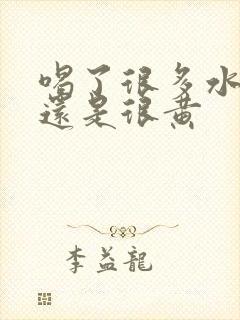 喝了很多水
還是很黃
李益龍